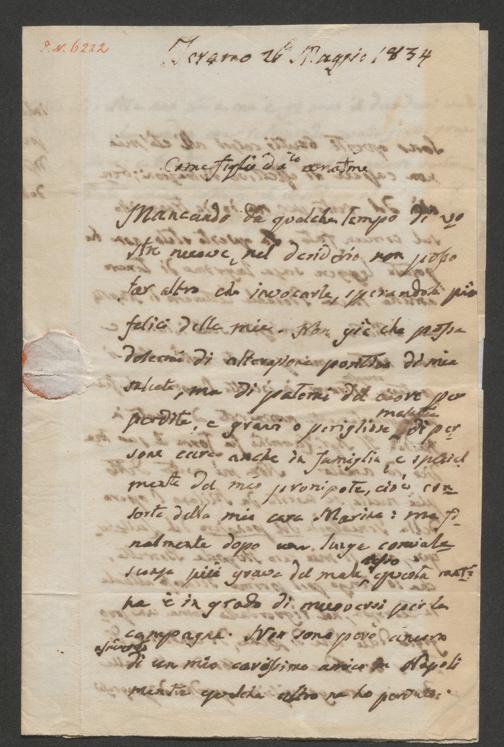 P. N. 6222
Teramo 26 Maggio 1834
Come figlio
Mancando da qualche tempo di vo
stre nuove, nel desiderio non posso
far altro che invocarle, sperandole più
felici delle mie. Non già che possa
dolermi di alterazione positiva di mia
salute, ma di patemi del cuore per
perdite, e gravi o perigliose malattie di per
sone care anche in famiglia, e special
mente del mio pronipote, cioè con
sorte della mia cara Marina: ma fi
nalmente dopo una lunga convale
scenza più grave del male istesso, questa matt.ª
ha è in grado di muoversi per la
campagna. Non sono però ancora
di un mio carissimo amico in Napoli
mentre qualche altro ne ho perduto.